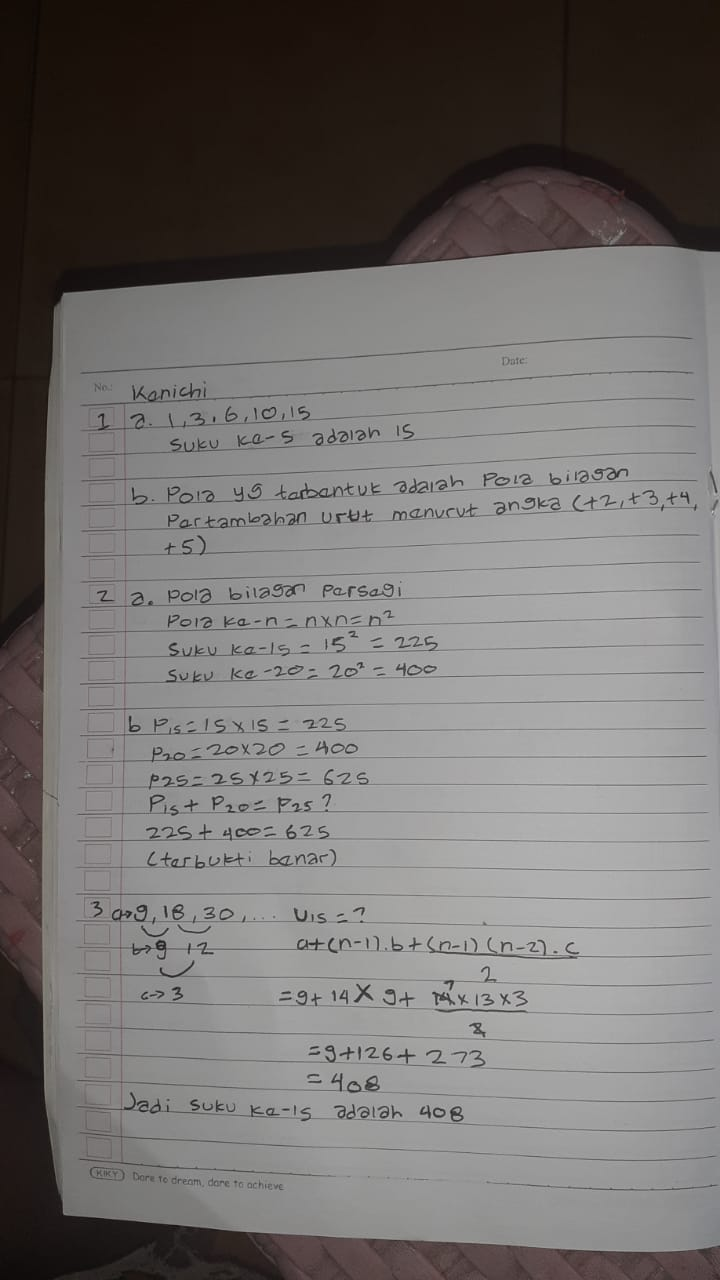 Date:
No.: Kenichi
1 a. 1, 3, 6, 10, 15
Suku ke-5 adalah 15
b. Pola yg terbentuk adalah Pola bilagan
Pertambahan urut menurut angka (+2, +3, +4,
+5)
2 a. Pola bilagan Persegi
Pola ke-n = n×n = n²
Suku ke-15 = 15² = 225
Suku ke-20 = 20² = 400
b P15 = 15 × 15 = 225
P20 = 20×20 = 400
P25 = 25×25 = 625
P15 + P20 = P25 ?
225 + 400 = 625
(terbukti benar)
3 a→9, 18, 30, ... U15 = ?
b→9 12 a+(n-1).b+(n-1)(n-2).c
2
c→3 =9+ 14 × 9+ 14 7 ×13×3
2
=9+126+ 273
= 408
Jadi suku ke-15 adalah 408
KIKY Dare to dream, dare to achieve